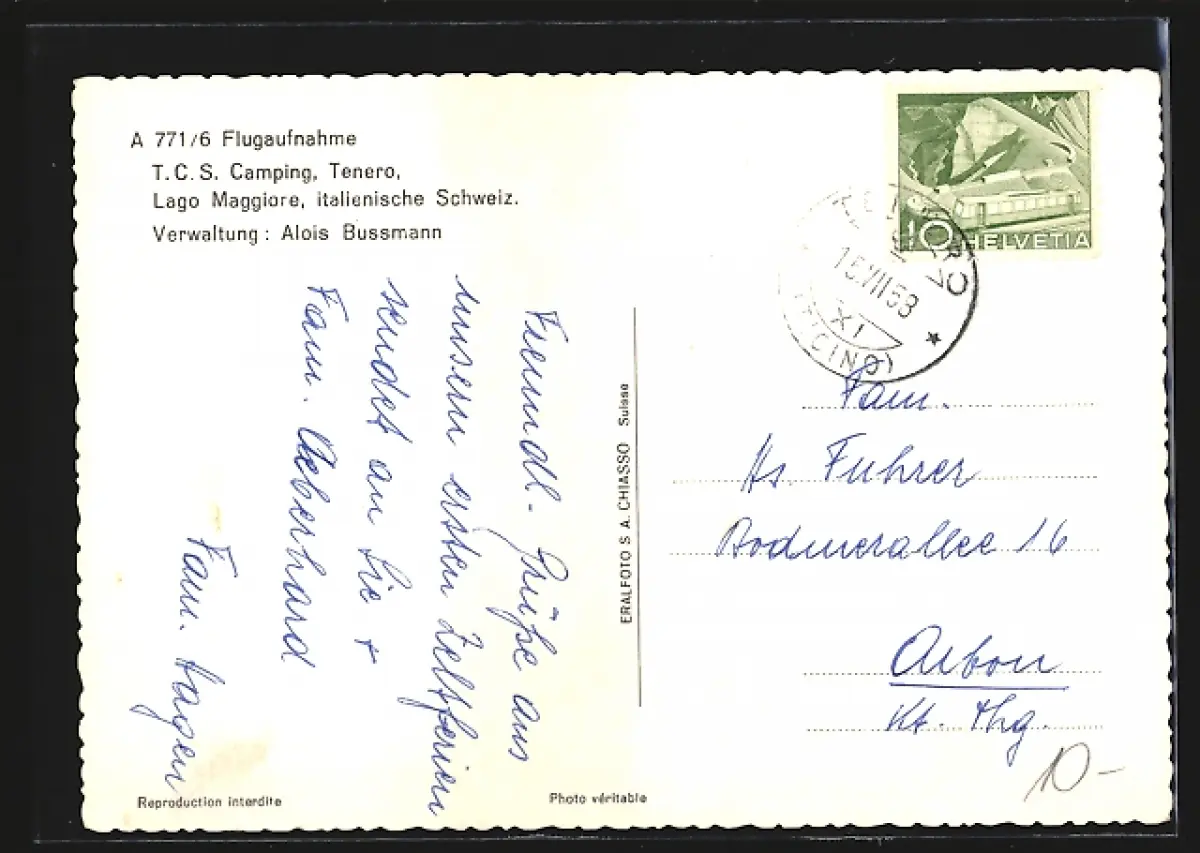 A 771/6 Flugaufnahme
T.C.S. Camping, Tenero,
Lago Maggiore, italienische Schweiz.
Verwaltung: Alois Bussmann
Freundl. Grüße aus
unsern ersten Zeltferien
sendet an Sie +
Fam. Aeberhard
Fam. Hagen
ERALFOTO S. A. CHIASSO Suisse
10 HELVETIA
15.VII.58
XI
(TICINO)
Fam.
Hs. Fuhrer
Bodmerallee 16
Arbon
Kt. Thg.
10 -
Reproduction interdite
Photo véritable